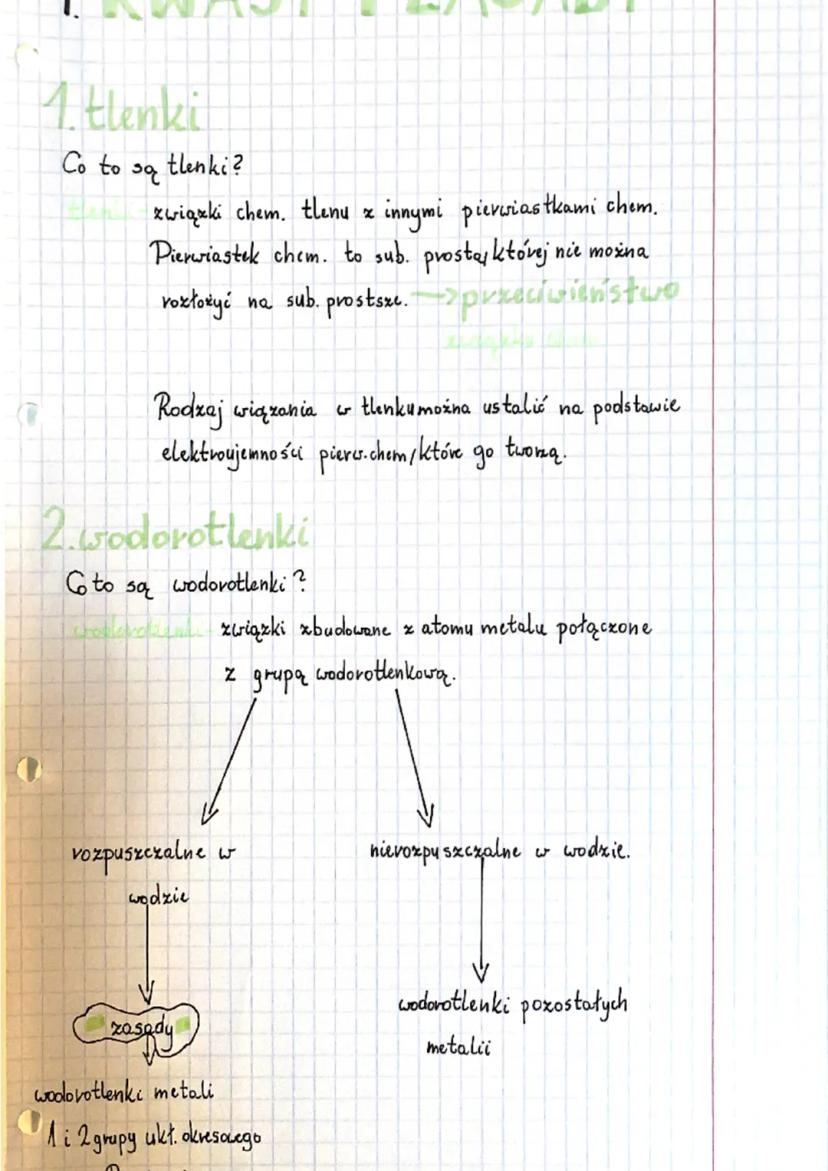 1. KWASY I ZASADY
1. tlenki
Co to są tlenki?
tlenki - związki chem. tlenu z innymi pierwiastkami chem.
Pierwiastek chem. to sub. prosta, której nie można
rozłożyć na sub. prostsze. —> przeciwieństwo
związku chem.
Rodzaj wiązania w tlenku można ustalić na podstawie
elektroujemności pierw. chem, które go tworzą.
2. wodorotlenki
Co to są wodorotlenki?
wodorotlenki - związki zbudowane z atomu metalu połączone
z grupą wodorotlenkową.
rozpuszczalne w nierozpuszczalne w wodzie.
wodzie
zasady
wodorotlenki pozostałych
metalii
wodorotlenki metali
1 i 2 grupy ukł. okresowego